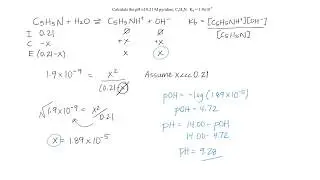 Calculate the pH of 0.21 M pyridine, C₅H₅N. K_b = 1.9x10⁻⁹
C₅H₅N + H₂O ⇌ C₅H₅NH⁺ + OH⁻
K_b = [C₅H₅NH⁺][OH⁻] / [C₅H₅N]
I 0.21 0 0
C -x +x +x
E (0.21-x) x x
1.9x10⁻⁹ = x² / (0.21-x) Assume x<<<0.21
√1.9x10⁻⁹ = x² / 0.21
x = 1.89x10⁻⁵
pOH = -log(1.89x10⁻⁵)
pOH = 4.72
pH = 14.00 - pOH
14.00 - 4.72
pH = 9.28